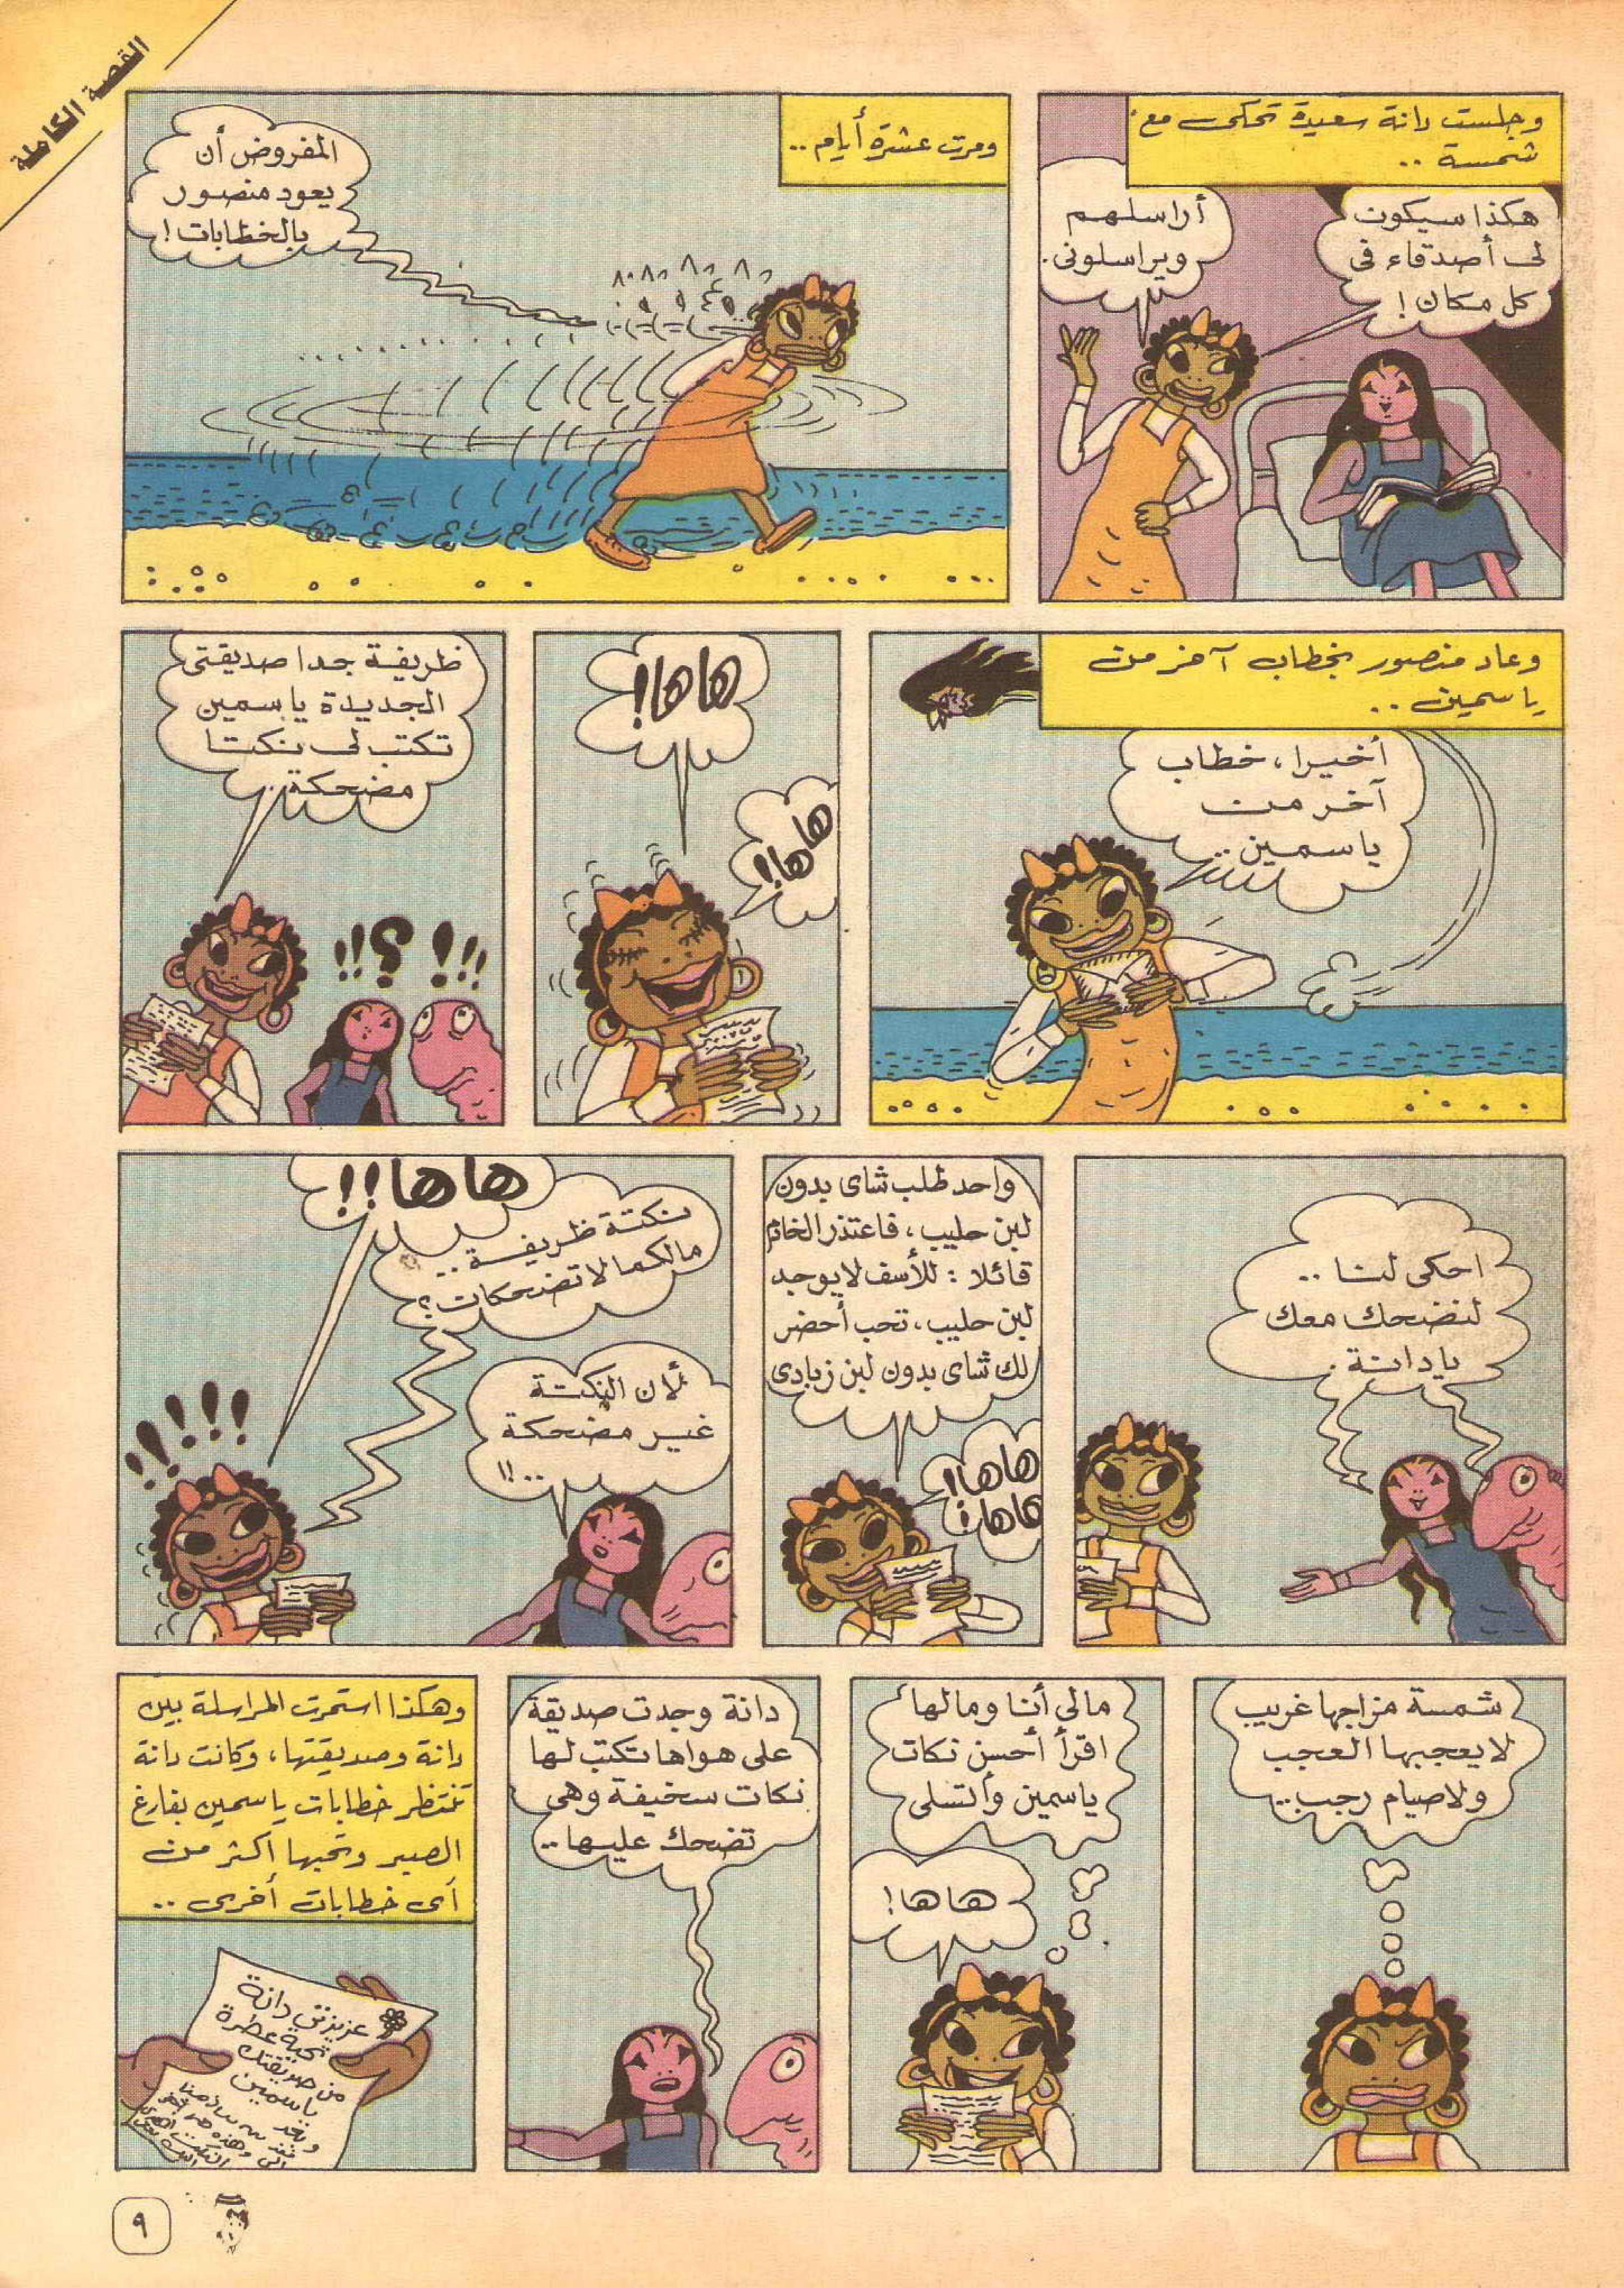 القصة الكاملة
وجلست دانة سعيدة تحكى مع
شمسة ..
هكذا سيكون
لى أصدقاء فى
كل مكان!
أراسلهم
ويراسلونى.
ومرت عشرة أيام ..
المفروض أن
يعود منصور
بالخطابات!
وعاد منصور بخطاب آخر من
ياسمين ..
أخيرا، خطاب
آخر من
ياسمين ..
هاها!
هاها!
ظريفة جدا صديقتى
الجديدة ياسمين
تكتب لى نكتا
مضحكة ..
احكى لنا ..
لنضحك معك
يا دانة .
واحد طلب شاى بدون
لبن حليب، فاعتذر الخادم
قائلا : للأسف لا يوجد
لبن حليب، تحب أحضر
لك شاى بدون لبن زبادى
هاها!
هاها!
هاها!!
نكتة ظريفة ..
مالكما لا تضحكان؟
لأن النكتة
غير مضحكة
..!!
شمسة مزاجها غريب
لا يعجبها العجب
ولا صيام رجب ..
مالى أنا ومالها
اقرأ أحسن نكات
ياسمين وأتسلى
هاها!
دانة وجدت صديقة
على هواها تكتب لها
نكات سخيفة وهى
تضحك عليها ..
وهكذا استمرت المراسلة بين
دانة وصديقتها، وكانت دانة
تنتظر خطابات ياسمين بفارغ
الصبر وتحبها أكثر من
أى خطابات أخرى ..
عزيزتى دانة
تحية عطرة
من صديقتك
ياسمين
وبعد
٩